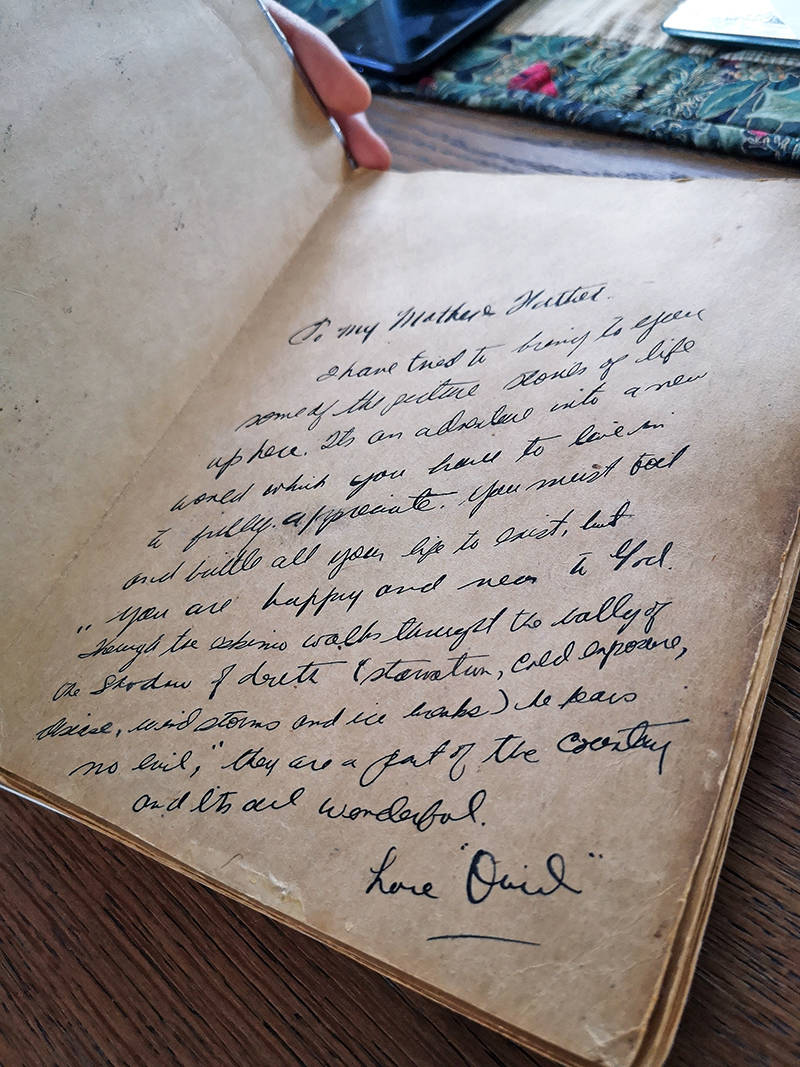 To My Mother & Father.
I have tried to bring to you
some of the picture stories of life
up here. Its an adventure into a new
world which you have to live in
to fully appreciate. You must toil
and battle all your life to exist, but
" you are happy and near to God.
Though the eskimo walks through the vally of
the Shadow of death (starvation, cold exposure,
disease, wind storms and ice breaks) he fears
no evil," they are a part of the country
and Its all wonderful.
Love